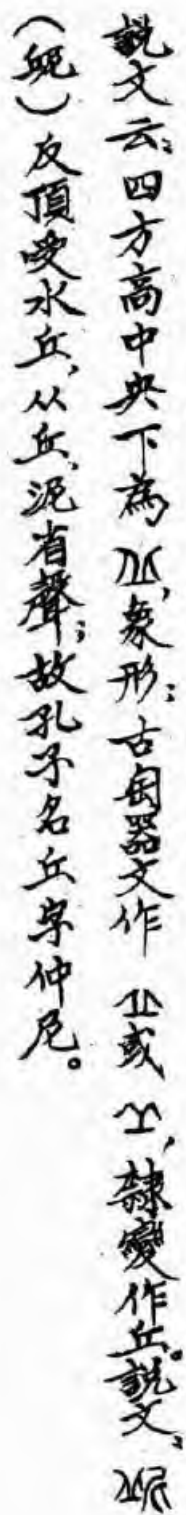 說文云：四方高中央下為 ，象形；古匋器文作 或 ，隸變作丘。說文：
（𡰥）反頂受水丘，从丘，泥省聲；故孔子名丘字仲尼。